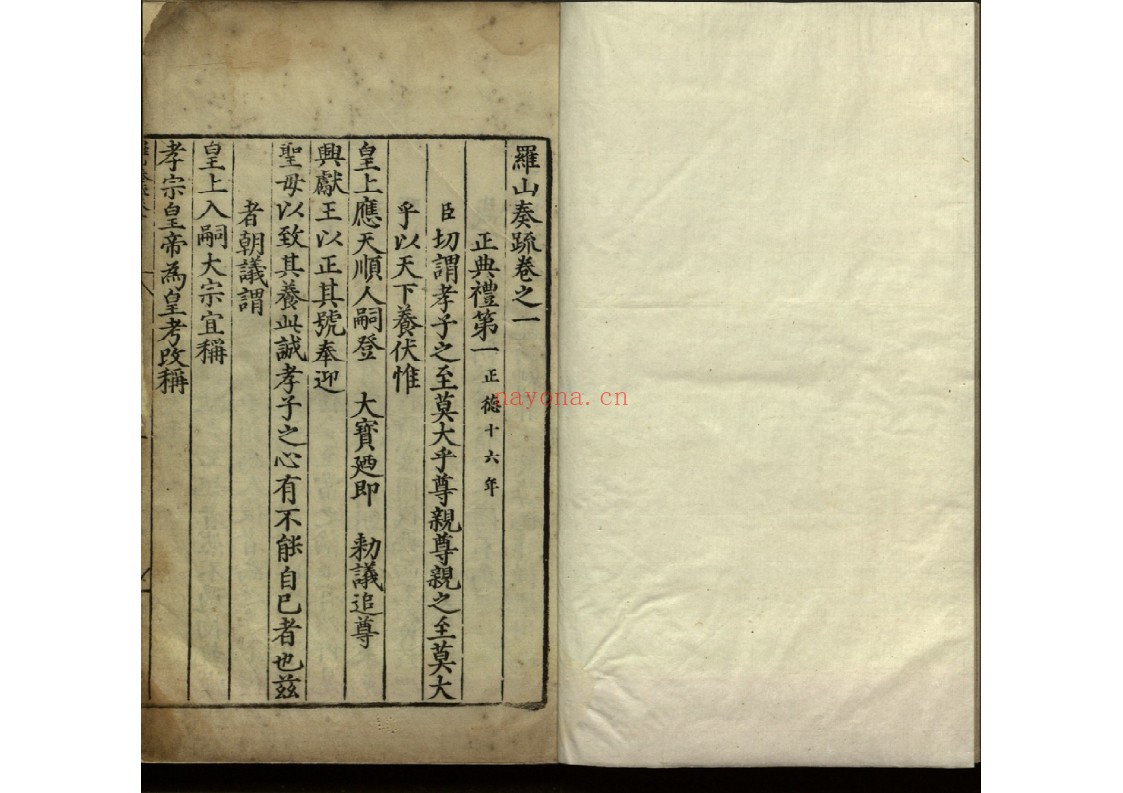 羅山奏疏卷之一
正典禮第一 正德十六年
臣切謂孝子之至莫大乎尊親尊親之至莫大
乎以天下養伏惟
皇上應天順人嗣登 大寶廼即 勑議追尊
興獻王以正其號奉迎
聖母以致其養此誠孝子之心有不能自已者也兹
者朝議謂
皇上入嗣大宗宜稱
孝宗皇帝爲皇考改稱
nayona.cn